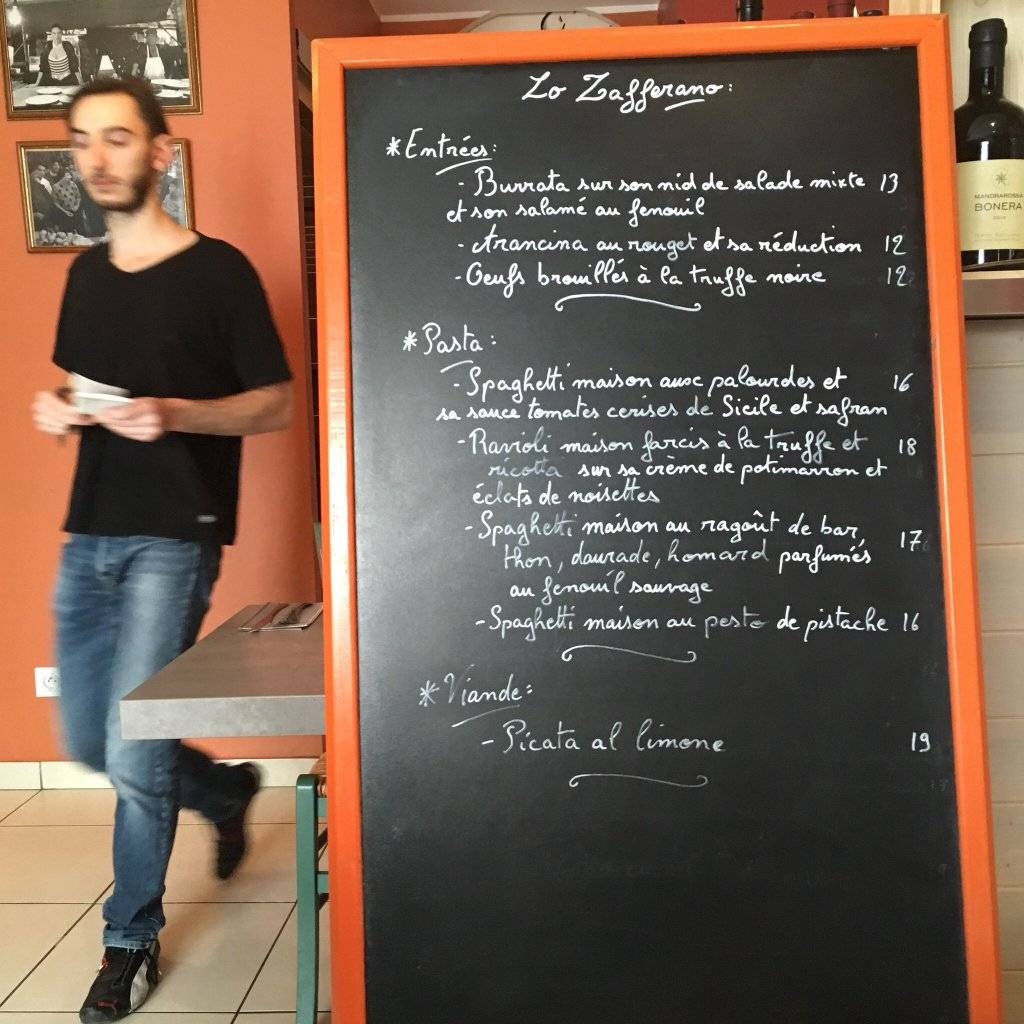 Lo Zafferano:
*Entrées:
- Burrata sur son nid de salade mixte 13
et son salamé au fenouil
- Arancina au rouget et sa réduction 12
- Oeufs brouillés à la truffe noire 12
*Pasta:
- Spaghetti maison aux palourdes et 16
sa sauce tomates cerises de Sicile et safran
- Ravioli maison farcis à la truffe et 18
ricotta sur sa crème de potimarron et
éclats de noisettes
- Spaghetti maison au ragoût de bar, 17
thon, daurade, homard parfumés
au fenouil sauvage
- Spaghetti maison au pesto de pistache 16
*Viande:
- Picata al limone 19
MANDRAROSSA
BONERA